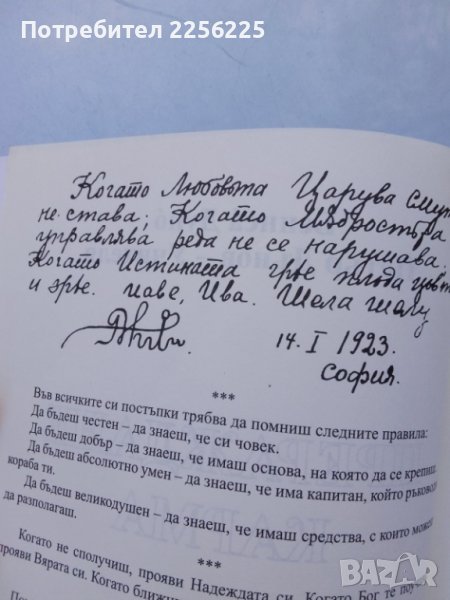 Потребител 2256225
Потребител 2256225
Когато Любовьта Царува смут
не става; Когато Мѫдростьта
управлява реда не се нарушава.
Когато Истината грее плода цъвти
и зрее.
14. I 1923.
София.
***
Във всичките си постъпки трябва да помниш следните правила:
Да бъдеш честен – да знаеш, че си човек.
Да бъдеш добър – да знаеш, че имаш основа, на която да се крепиш.
Да бъдеш абсолютно умен – да знаеш, че има капитан, който ръководи
кораба ти.
Да бъдеш великодушен – да знаеш, че имаш средства, с които можеш
да разполагаш.
***
Когато не сполучиш, прояви Надеждата си. Когато Бог те
прояви Вярата си. Когато ближни
BAZAR
.bg